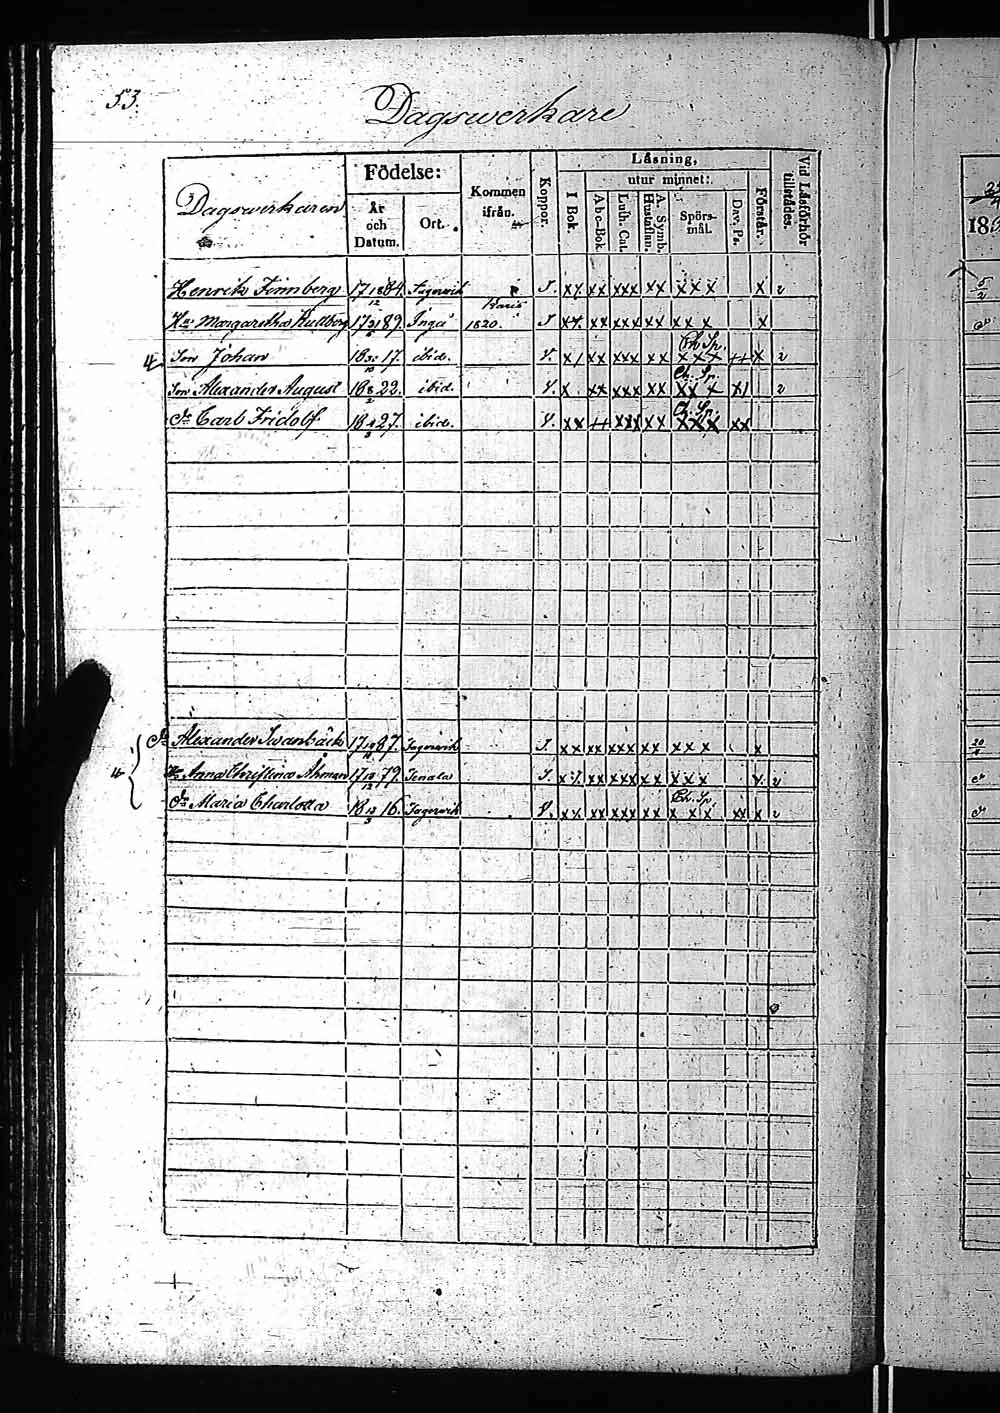 53.
Dagswerkare
Dagswerkaren
Födelse:
År och Datum.
Ort.
Kommen ifrån.
Koppor.
Läsning,
utur minnet:
I Bok.
Abc-Bok.
Luth. Cat.
A. Symb. Hustaflan.
Spörs-mål.
Dav. Ps.
Förstår.
Vid Läsförhör tillstädes.
Henrik Finnberg 17 18/12 84. Fagervik J. x x x x x x x x x x x x x 2
Hu: Margaretha Kullberg 17 89. Ingå Karis 1820. J x x x x x x x x x x x x x
4 Son Johan 18 30/10 17. ibid. V. x / x x x x x x x Ch. Sp. x x x ++ x 2
Son Alexander August 18 8/2 22. ibid. V. x x x x x x x x Ch. Sp. x x x x / 2
Dn Carl Fridolf 18 4/3 27. ibid. V. x x ++ x x x x x Ch. Sp. x x x x x
Alexander Swanbäck 17 87. Fagervik J. x x x x x x x x x x x x x
4 Hu Anna Christina Åhman 17 18/12 79. Tenala J. x / x x x x x x x x x x x 2
Dr Maria Charlotta 18 12/3 16. Fagervik V. x x x x x x x x x Ch. Sp. x x x x x x 2
18
5/2
20/4